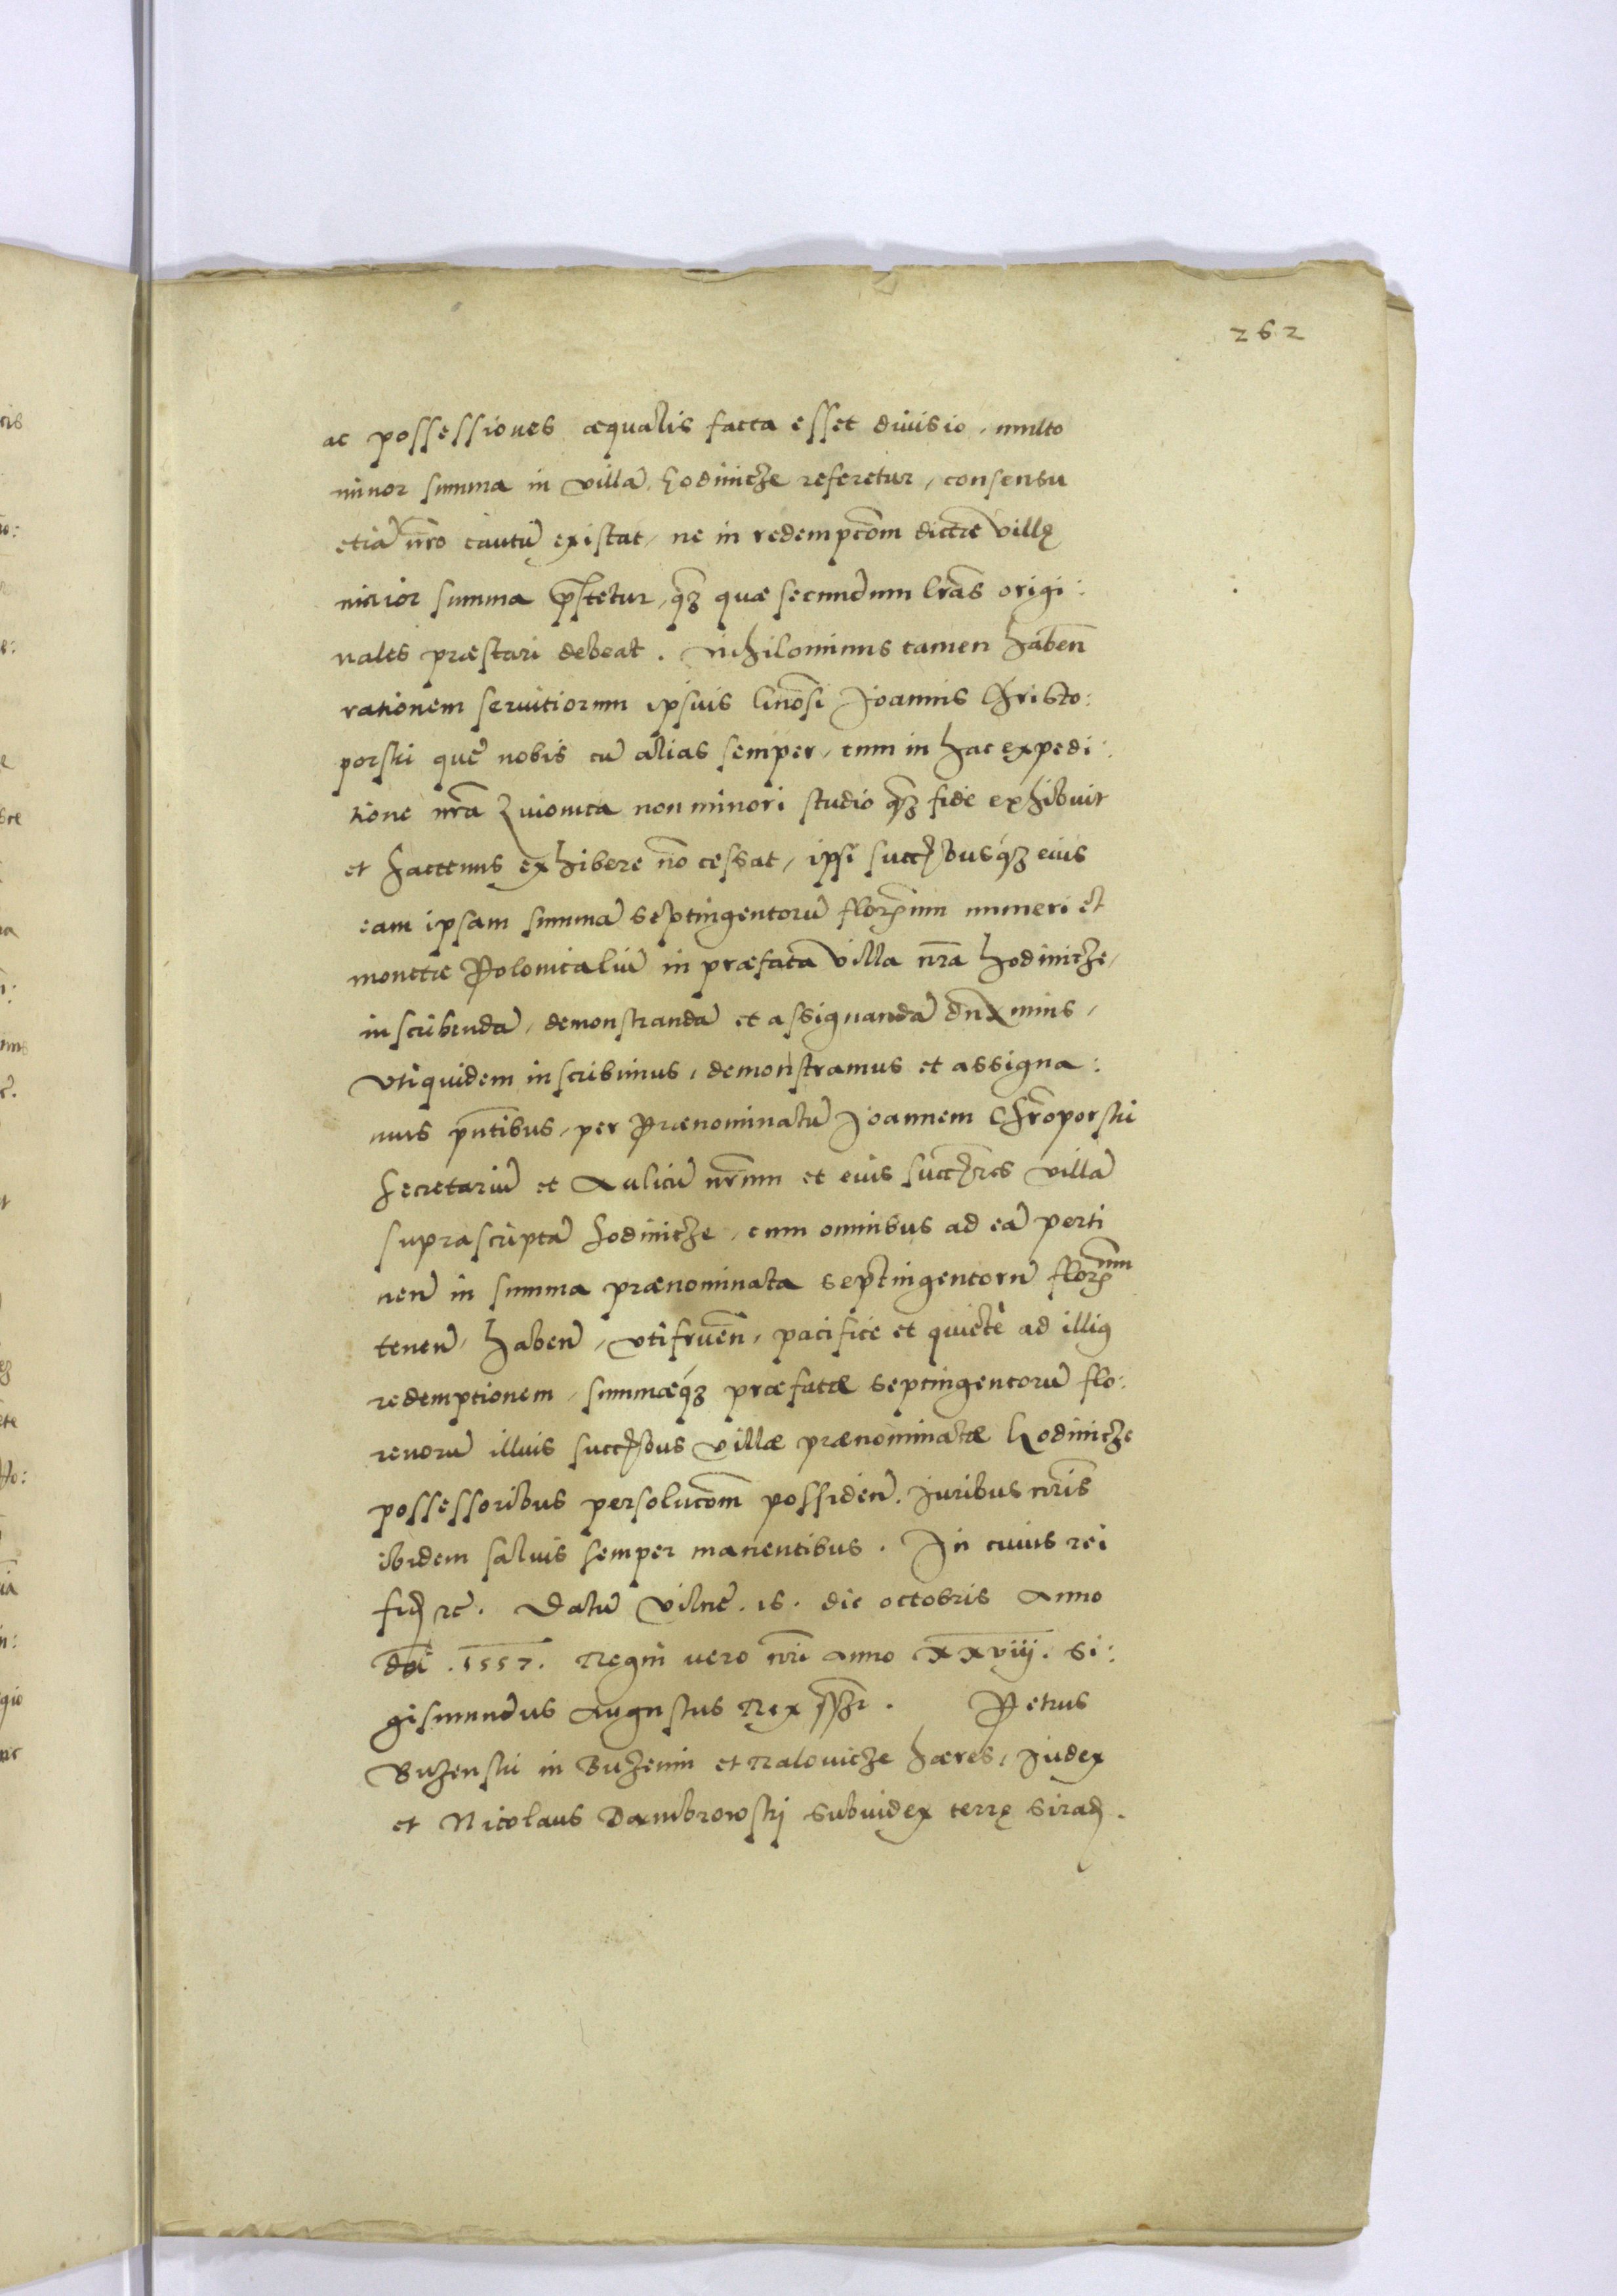 262
ac possessiones æqualis facta esset diuisio, multo
minor summa in villã Hodinicze referetur, consensu
etiã nr̃o cautũ existat, ne in redempcõm dictæ villę
maior summa pr̃stetur, q̃ꝫ quæ secundum lr̃as origi:
nales præstari debeat. Nihilominus tamen habeñ
rationem seruitiorum ipsius Gnõsi Joannis Christo:
porski quẽ nobis cũ alias semper, tum in hac expedi:
tione nr̃a Liuonica non minori studio q̃ꝫ fide exhibuit
et hactenus exhibere nõ cessat, ipsi succ̃busq́ꝫ eius
eam ipsam summã septingentorũ florẽnum numeri et
monetæ Polonicaliũ in præfata villa nr̃a Hodinicze,
inscribendã, demonstrandã et assignandã duximus,
Vti quidem inscribimus, demonstramus et assigna:
mus pñtibus, per Prænominatũ Joannem Chrõporski
Secretariũ et Aulicũ nr̃um et eius succ̃res villã
suprascriptã Hodinicze, cum omnibus ad eã perti
neñ in summa prænominata septingentorũ florẽnum
teneñ, habeñ, vtifrueñ, pacifice et quietè ad illius
redemptionem, summæq́ꝫ præfatæ septingentorũ flo:
renorũ illius succ̃bus villæ prænominatæ Hodinicze
possessoribus persolucõm possideñ. Juribus nr̃is
ibidem saluis semper manentibus. In cuius rei
fid̃ ꝛc̃. Datũ Vilnę. 15. die octobris Anno
dñi .1557. Regni vero nr̃i anno xxviij. Si:
gismundus Augustus Rex sst̃. Petrus
Buzenski in Buzenin et Ralovicze hæres, Judex
et Nicolaus Dambrowskj Subiudex terrę Sirad̃.